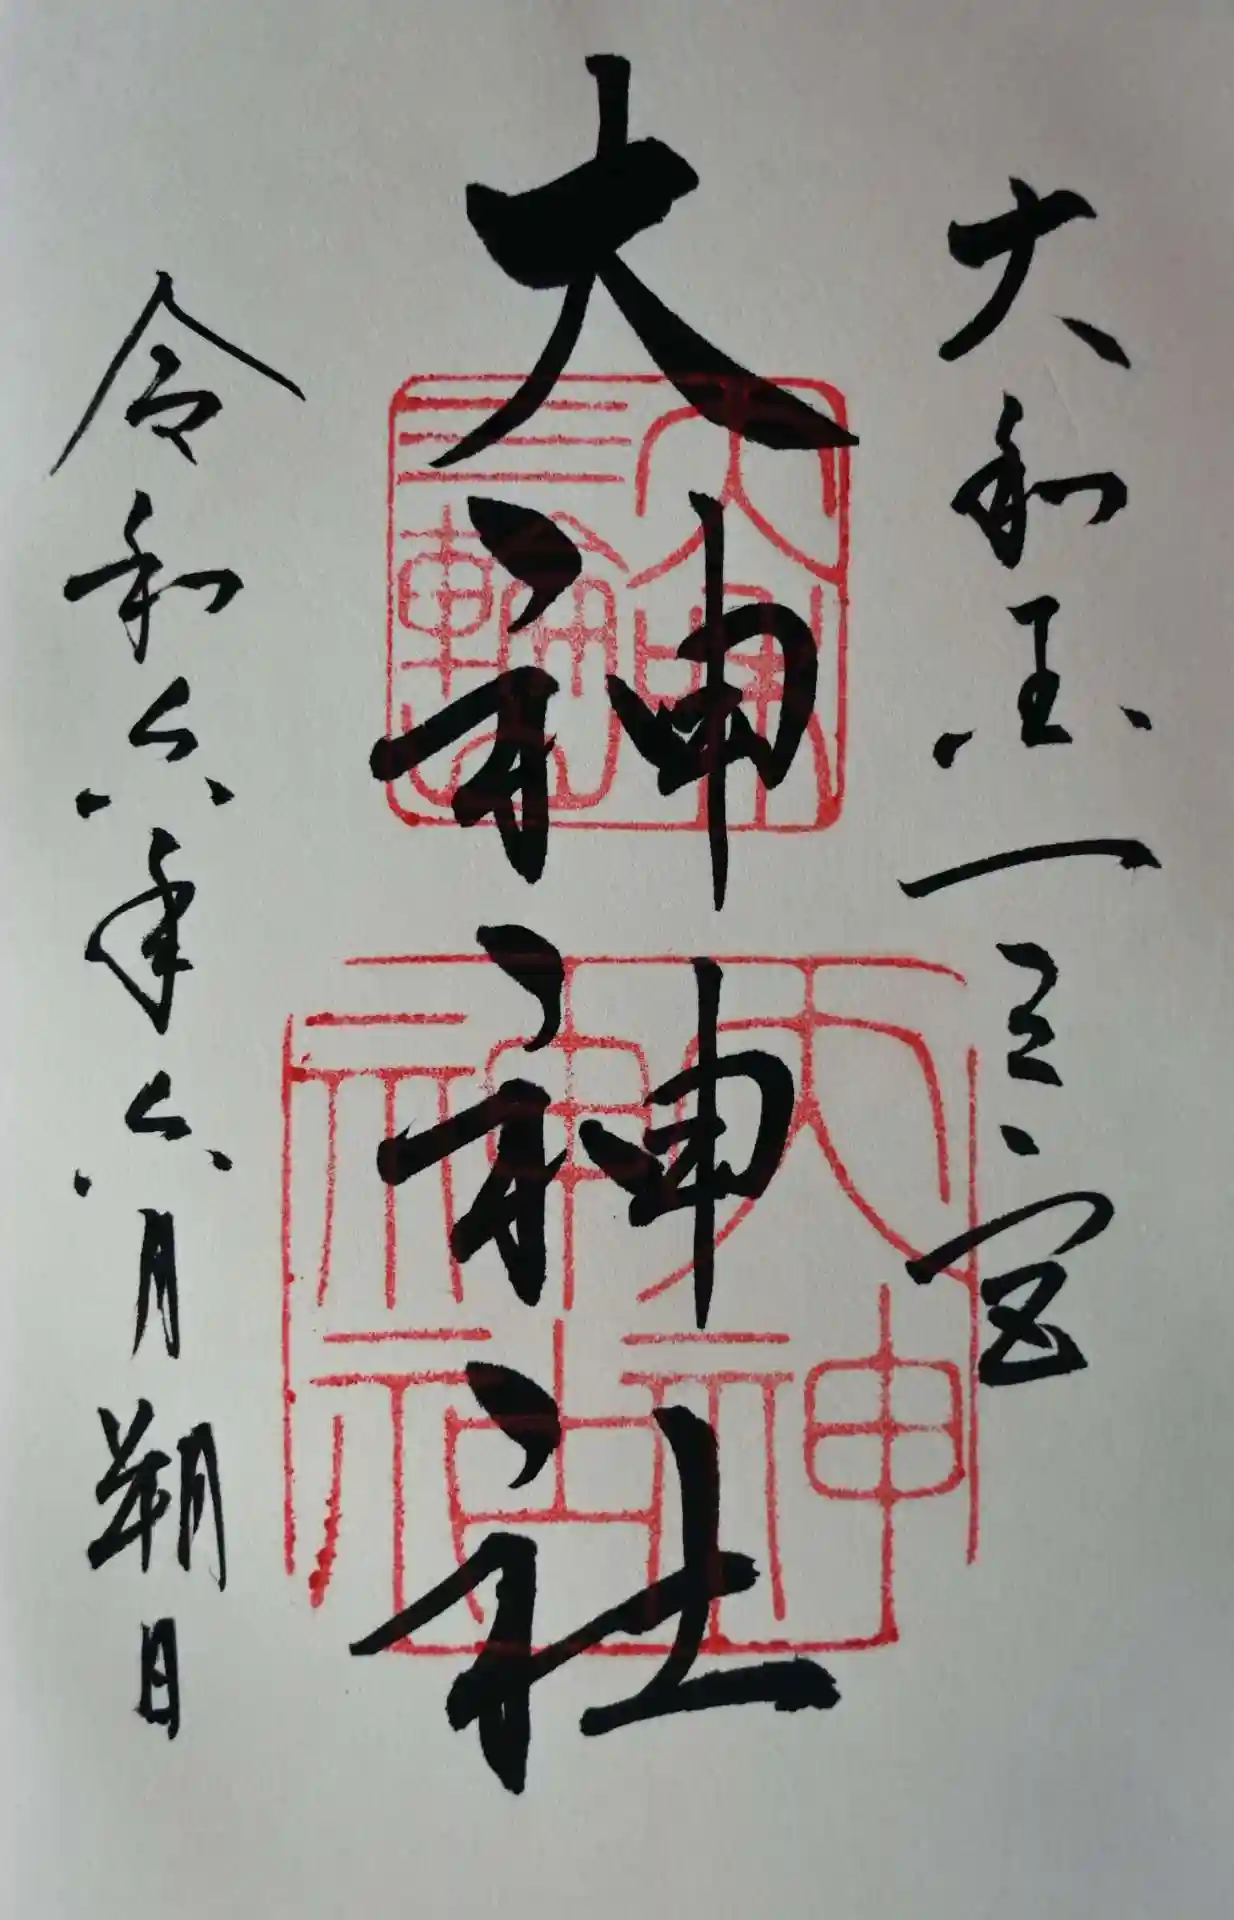 大和国一之宮
大神神社
令和六年六月朔日
大神
神社